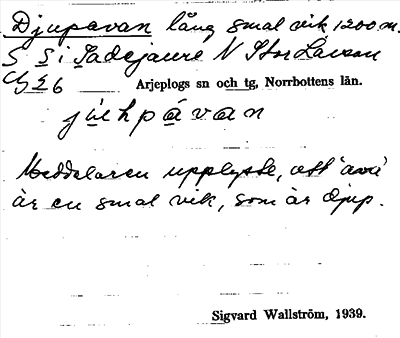 Djupavan lång smal vik 1200 m.
S S i Sadejaure N Stor Laisan
6
Arjeplogs sn och tg, Norrbottens län.
jüh pávan
Meddelaren upplyste, att 'avá'
är en smal vik, som är djup.
Sigvard Wallström, 1939.